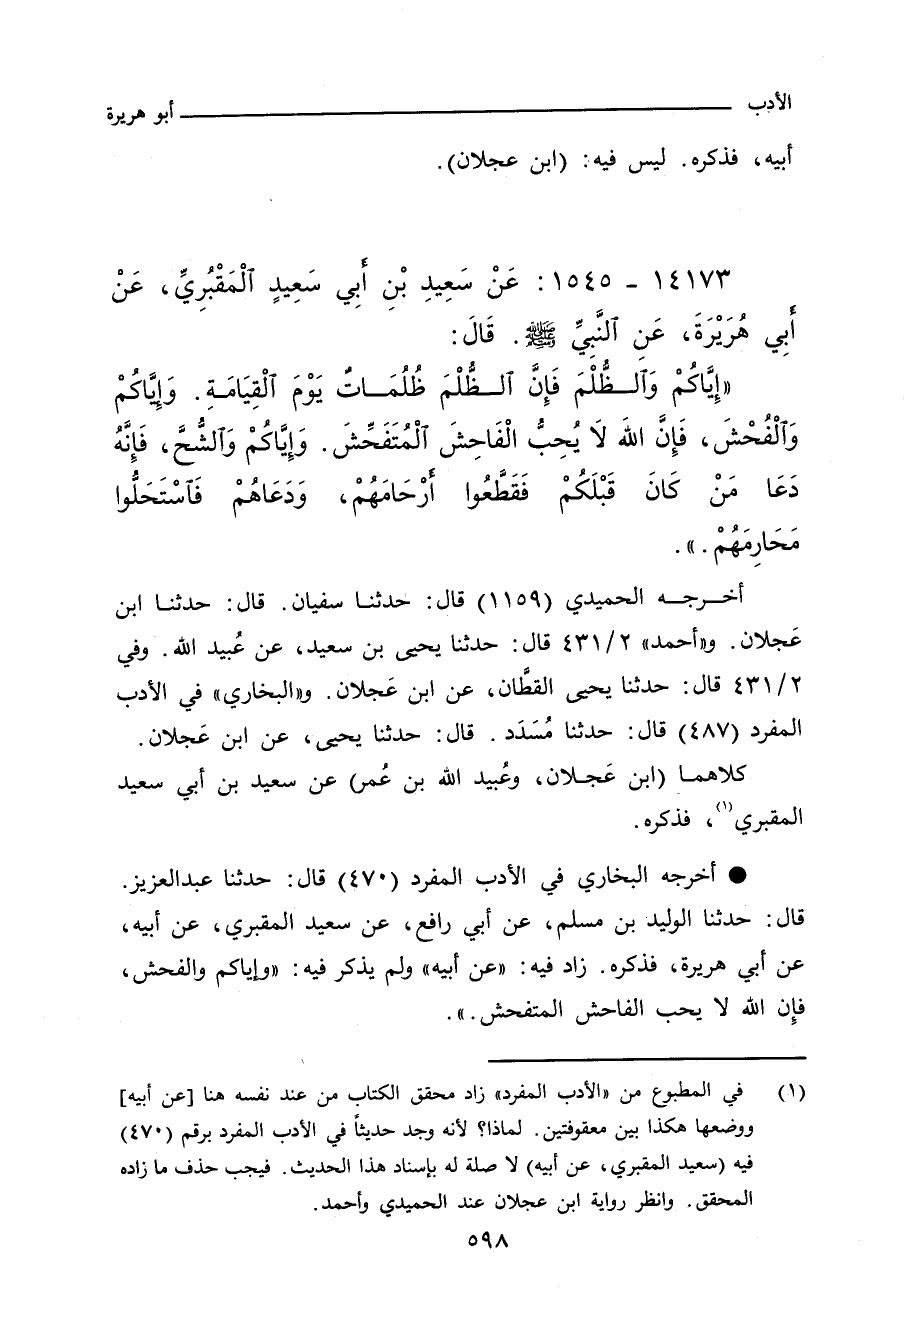 الأدب ــــــــــــــــــــ أبو هريرة
أبيه، فذكره. ليس فيه: (ابن عجلان).
١٤١٧٣ - ١٥٤٥: عَنْ سَعِيدِ بْنِ أَبِي سَعِيدٍ ٱلْمَقْبُرِيِّ، عَنْ
أَبِي هُرَيْرَةَ، عَنِ ٱلنَّبِيِّ ﷺ. قَالَ:
«إِيَّاكُمْ وَٱلظُّلْمَ فَإِنَّ ٱلظُّلْمَ ظُلُمَاتٌ يَوْمَ ٱلْقِيَامَةِ. وَإِيَّاكُمْ
وَٱلْفُحْشَ، فَإِنَّ اللهَ لَا يُحِبُّ الْفَاحِشَ ٱلْمُتَفَحِّشَ. وَإِيَّاكُمْ وَٱلشُّحَّ، فَإِنَّهُ
دَعَا مَنْ كَانَ قَبْلَكُمْ فَقَطَّعُوا أَرْحَامَهُمْ، وَدَعَاهُمْ فَٱسْتَحَلُّوا
مَحَارِمَهُمْ.».
أخرجه الحميدي (١١٥٩) قال: حدثنا سفيان. قال: حدثنا ابن
عَجلان. و«أحمد» ٤٣١/٢ قال: حدثنا يحيى بن سعيد، عن عُبيد الله. وفي
٤٣١/٢ قال: حدثنا يحيى القطَّان، عن ابن عَجلان. و«البخاري» في الأدب
المفرد (٤٨٧) قال: حدثنا مُسَدَد. قال: حدثنا يحيى، عن ابن عَجلان.
كلاهما (ابن عَجلان، وعُبيد الله بن عُمر) عن سعيد بن أبي سعيد
المقبري(١)، فذكره.
● أخرجه البخاري في الأدب المفرد (٤٧٠) قال: حدثنا عبدالعزيز.
قال: حدثنا الوليد بن مسلم، عن أبي رافع، عن سعيد المقبري، عن أبيه،
عن أبي هريرة، فذكره. زاد فيه: «عن أبيه» ولم يذكر فيه: «وإياكم والفحش،
فإن الله لا يحب الفاحش المتفحش.».
(١) في المطبوع من «الأدب المفرد» زاد محقق الكتاب من عند نفسه هنا [عن أبيه]
ووضعها هكذا بين معقوفتين. لماذا؟ لأنه وجد حديثاً في الأدب المفرد برقم (٤٧٠)
فيه (سعيد المقبري، عن أبيه) لا صلة له بإسناد هذا الحديث. فيجب حذف ما زاده
المحقق. وانظر رواية ابن عجلان عند الحميدي وأحمد.
٥٩٨